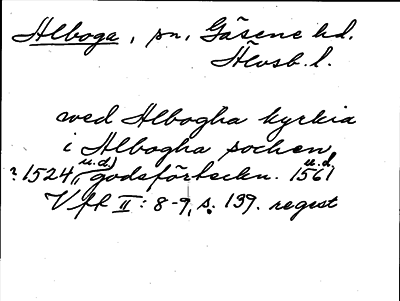 Alboga, sn, Gäsene hd.
Älvsb. l.
wed Albogha kyrkia
i Albogha sochen
? 1524 (u.d.) godsförteckn. 1561 u.d.
Vfl II: 8-9, s. 139. regest